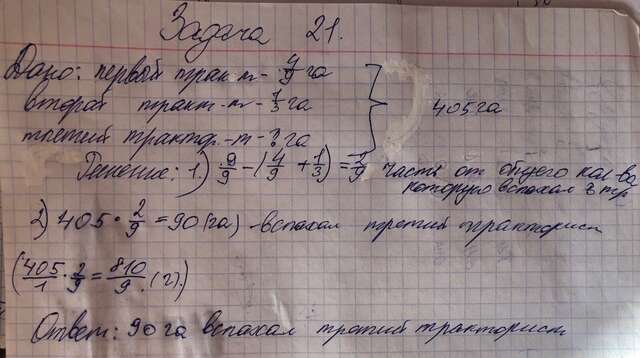 Задача 21.
Дано: первый тракт-т - 4/9 га
второй тракт-т - 1/3 га
третий трактор.-т - ? га
} 405 га
Решение: 1) 9/9 - (4/9 + 1/3) = 2/9 часть от общего кол-ва
которую вспахал 3 тр.
2) 405 · 2/9 = 90 (га) - вспахал третий тракторист
(405/1 · 2/9 = 810/9 (г).)
Ответ: 90 га вспахал третий тракторист